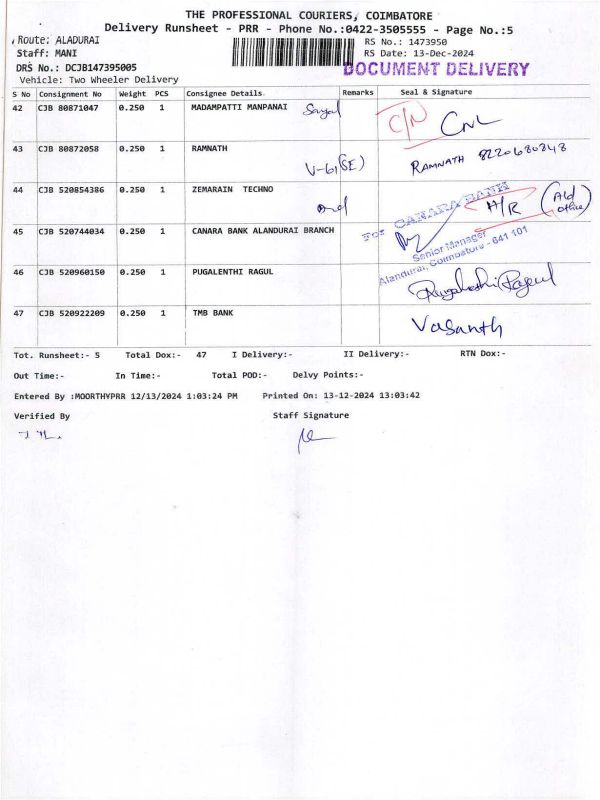 THE PROFESSIONAL COURIERS, COIMBATORE
Delivery Runsheet - PRR - Phone No.:0422-3505555 - Page No.:5
Route: ALADURAI
RS No.: 1473950
Staff: MANI
RS Date: 13-Dec-2024
DRS No.: DCJB147395005
DOCUMENT DELIVERY
Vehicle: Two Wheeler Delivery
S No Consignment No Weight PCS Consignee Details Remarks Seal & Signature
42 CJB 80871047 0.250 1 MADAMPATTI MANPANAI
C/N CNL
43 CJB 80872058 0.250 1 RAMNATH
RAMNATH 8220680848
44 CJB 520854386 0.250 1 ZEMARAIN TECHNO
For CANARA BANK
A/R
45 CJB 520744034 0.250 1 CANARA BANK ALANDURAI BRANCH
Senior Manager
Alandurai, Coimbatore - 641 101
46 CJB 520960150 0.250 1 PUGALENTHI RAGUL
47 CJB 520922209 0.250 1 TMB BANK
Vasanth
Tot. Runsheet:- 5 Total Dox:- 47 I Delivery:- II Delivery:- RTN Dox:-
Out Time:- In Time:- Total POD:- Delvy Points:-
Entered By :MOORTHYPRR 12/13/2024 1:03:24 PM Printed On: 13-12-2024 13:03:42
Verified By Staff Signature